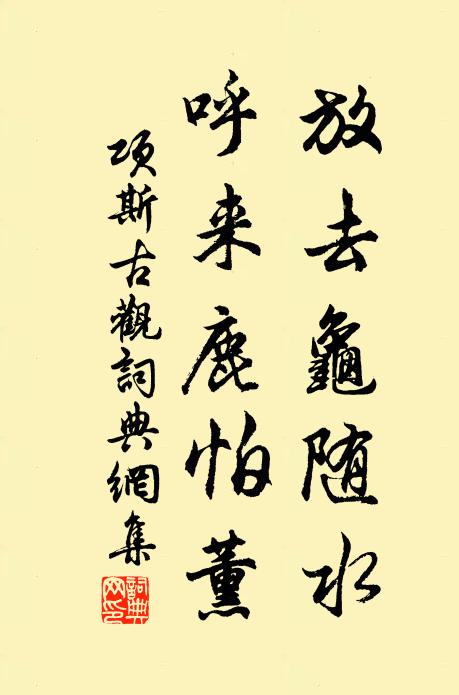 放去龜随水
呼来鹿怕薰
項斯古觀詞典網集
詞典网印